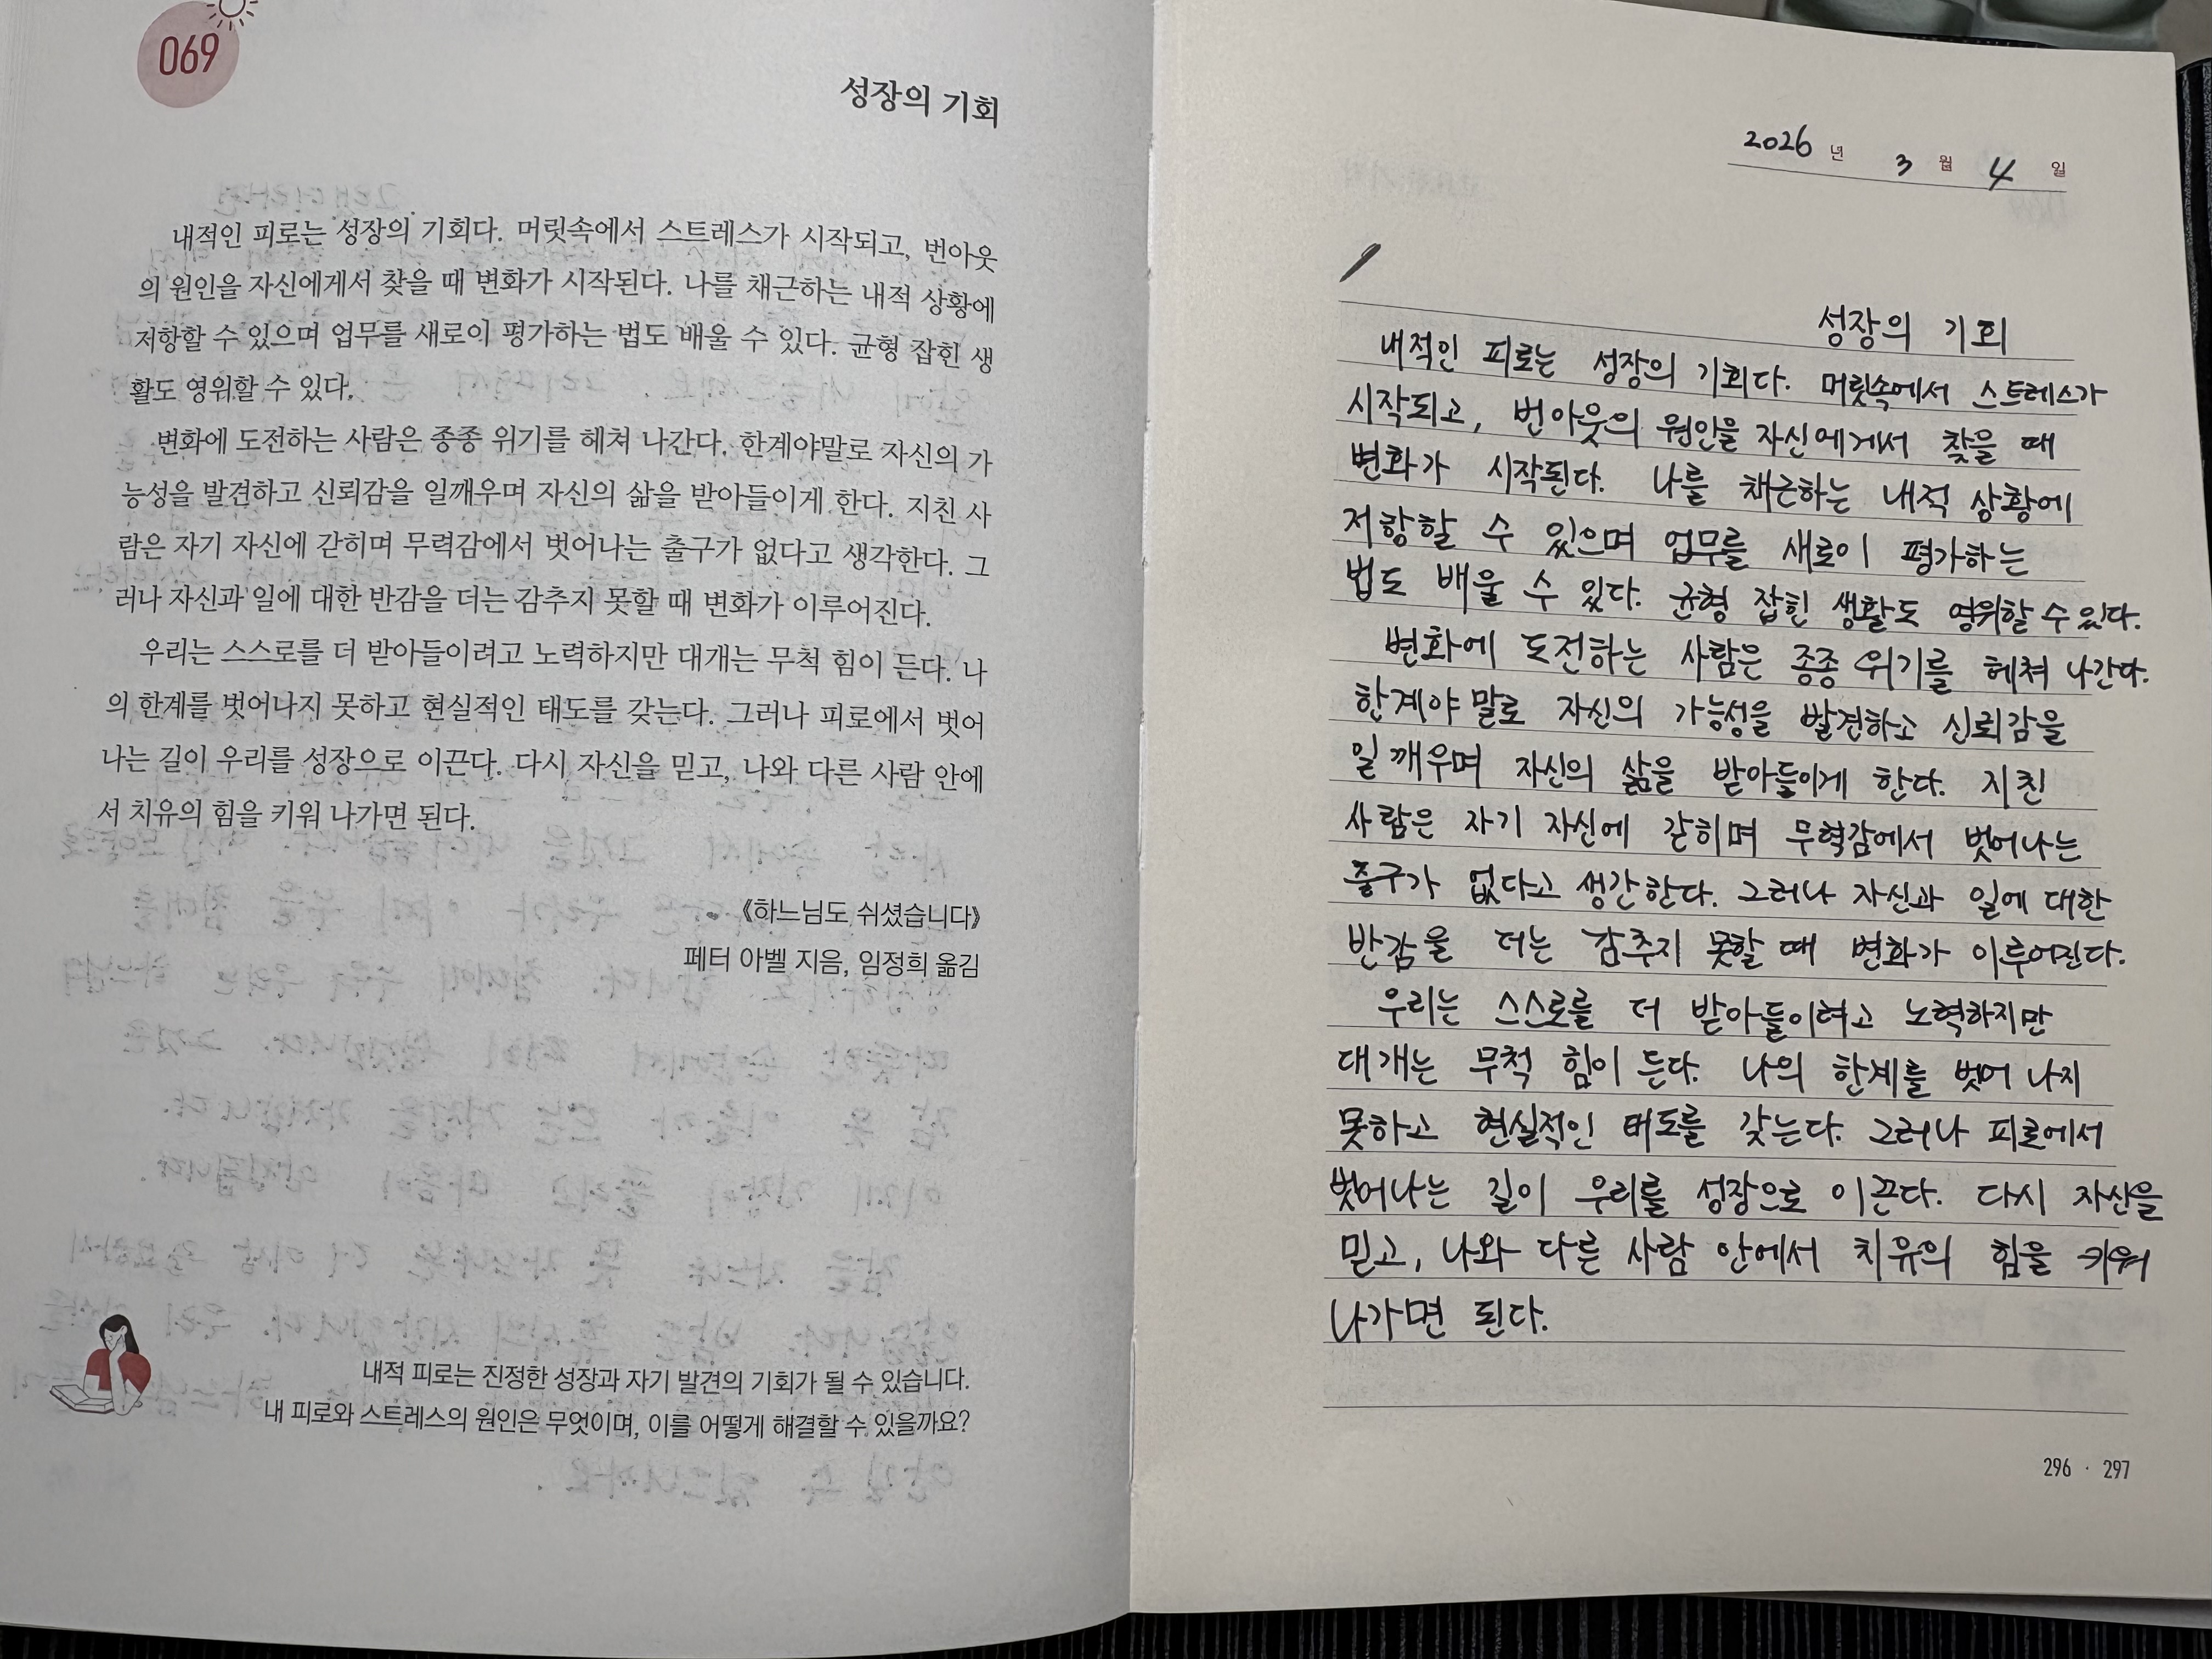 069
성장의 기회
내적인 피로는 성장의 기회다. 머릿속에서 스트레스가 시작되고, 번아웃
의 원인을 자신에게서 찾을 때 변화가 시작된다. 나를 채근하는 내적 상황에
저항할 수 있으며 업무를 새로이 평가하는 법도 배울 수 있다. 균형 잡힌 생
활도 영위할 수 있다.
변화에 도전하는 사람은 종종 위기를 헤쳐 나간다. 한계야말로 자신의 가
능성을 발견하고 신뢰감을 일깨우며 자신의 삶을 받아들이게 한다. 지친 사
람은 자기 자신에 갇히며 무력감에서 벗어나는 출구가 없다고 생각한다. 그
러나 자신과 일에 대한 반감을 더는 감추지 못할 때 변화가 이루어진다.
우리는 스스로를 더 받아들이려고 노력하지만 대개는 무척 힘이 든다. 나
의 한계를 벗어나지 못하고 현실적인 태도를 갖는다. 그러나 피로에서 벗어
나는 길이 우리를 성장으로 이끈다. 다시 자신을 믿고, 나와 다른 사람 안에
서 치유의 힘을 키워 나가면 된다.
《하느님도 쉬셨습니다》
페터 아벨 지음, 임정희 옮김
내적 피로는 진정한 성장과 자기 발견의 기회가 될 수 있습니다.
내 피로와 스트레스의 원인은 무엇이며, 이를 어떻게 해결할 수 있을까요?
2026 년 3 월 4 일
성장의 기회
내적인 피로는 성장의 기회다. 머릿속에서 스트레스가
시작되고, 번아웃의 원인을 자신에게서 찾을 때
변화가 시작된다. 나를 채근하는 내적 상황에
저항할 수 있으며 업무를 새로이 평가하는
법도 배울 수 있다. 균형 잡힌 생활도 영위할 수 있다.
변화에 도전하는 사람은 종종 위기를 헤쳐 나간다.
한계야말로 자신의 가능성을 발견하고 신뢰감을
일깨우며 자신의 삶을 받아들이게 한다. 지친
사람은 자기 자신에 갇히며 무력감에서 벗어나는
출구가 없다고 생각한다. 그러나 자신과 일에 대한
반감을 더는 감추지 못할 때 변화가 이루어진다.
우리는 스스로를 더 받아들이려고 노력하지만
대개는 무척 힘이 든다. 나의 한계를 벗어나지
못하고 현실적인 태도를 갖는다. 그러나 피로에서
벗어나는 길이 우리를 성장으로 이끈다. 다시 자신을
믿고, 나와 다른 사람 안에서 치유의 힘을 키워
나가면 된다.
296 · 297